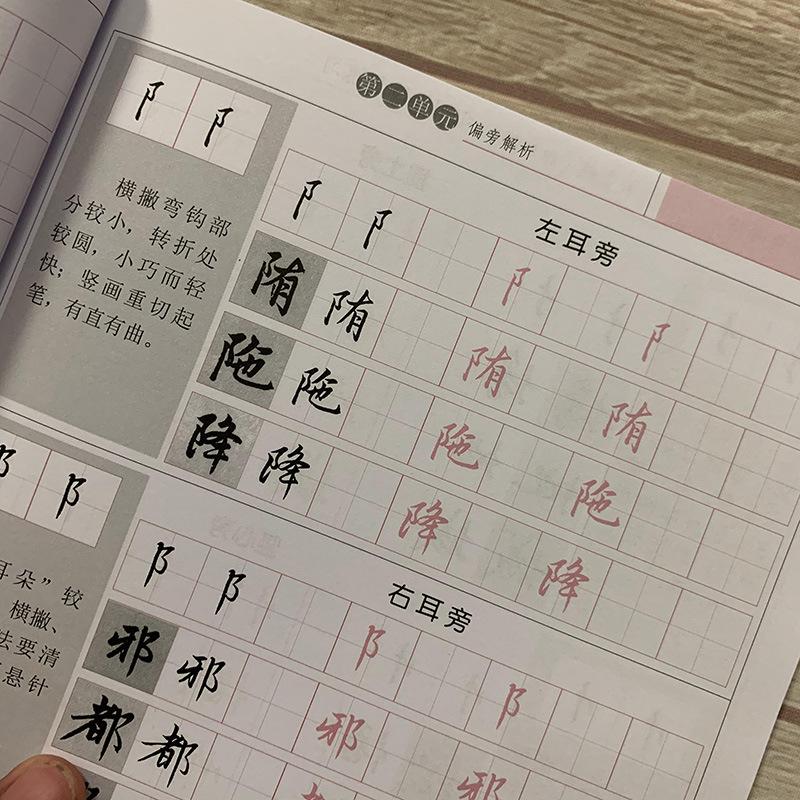 第二单元 偏旁解析
阝 阝
横撇弯钩部
分较小，转折处
较圆，小巧而轻
快；竖画重切起
笔，有直有曲。
左耳旁
阝 阝 阝 阝
陏 陏 陏 陏
陁 陁 陁 陁
降 降 降 降
阝 阝
耳朵”较
横撇、
法要清
悬针
右耳旁
阝 阝 阝 阝
邪 邪 邪 邪
都 都